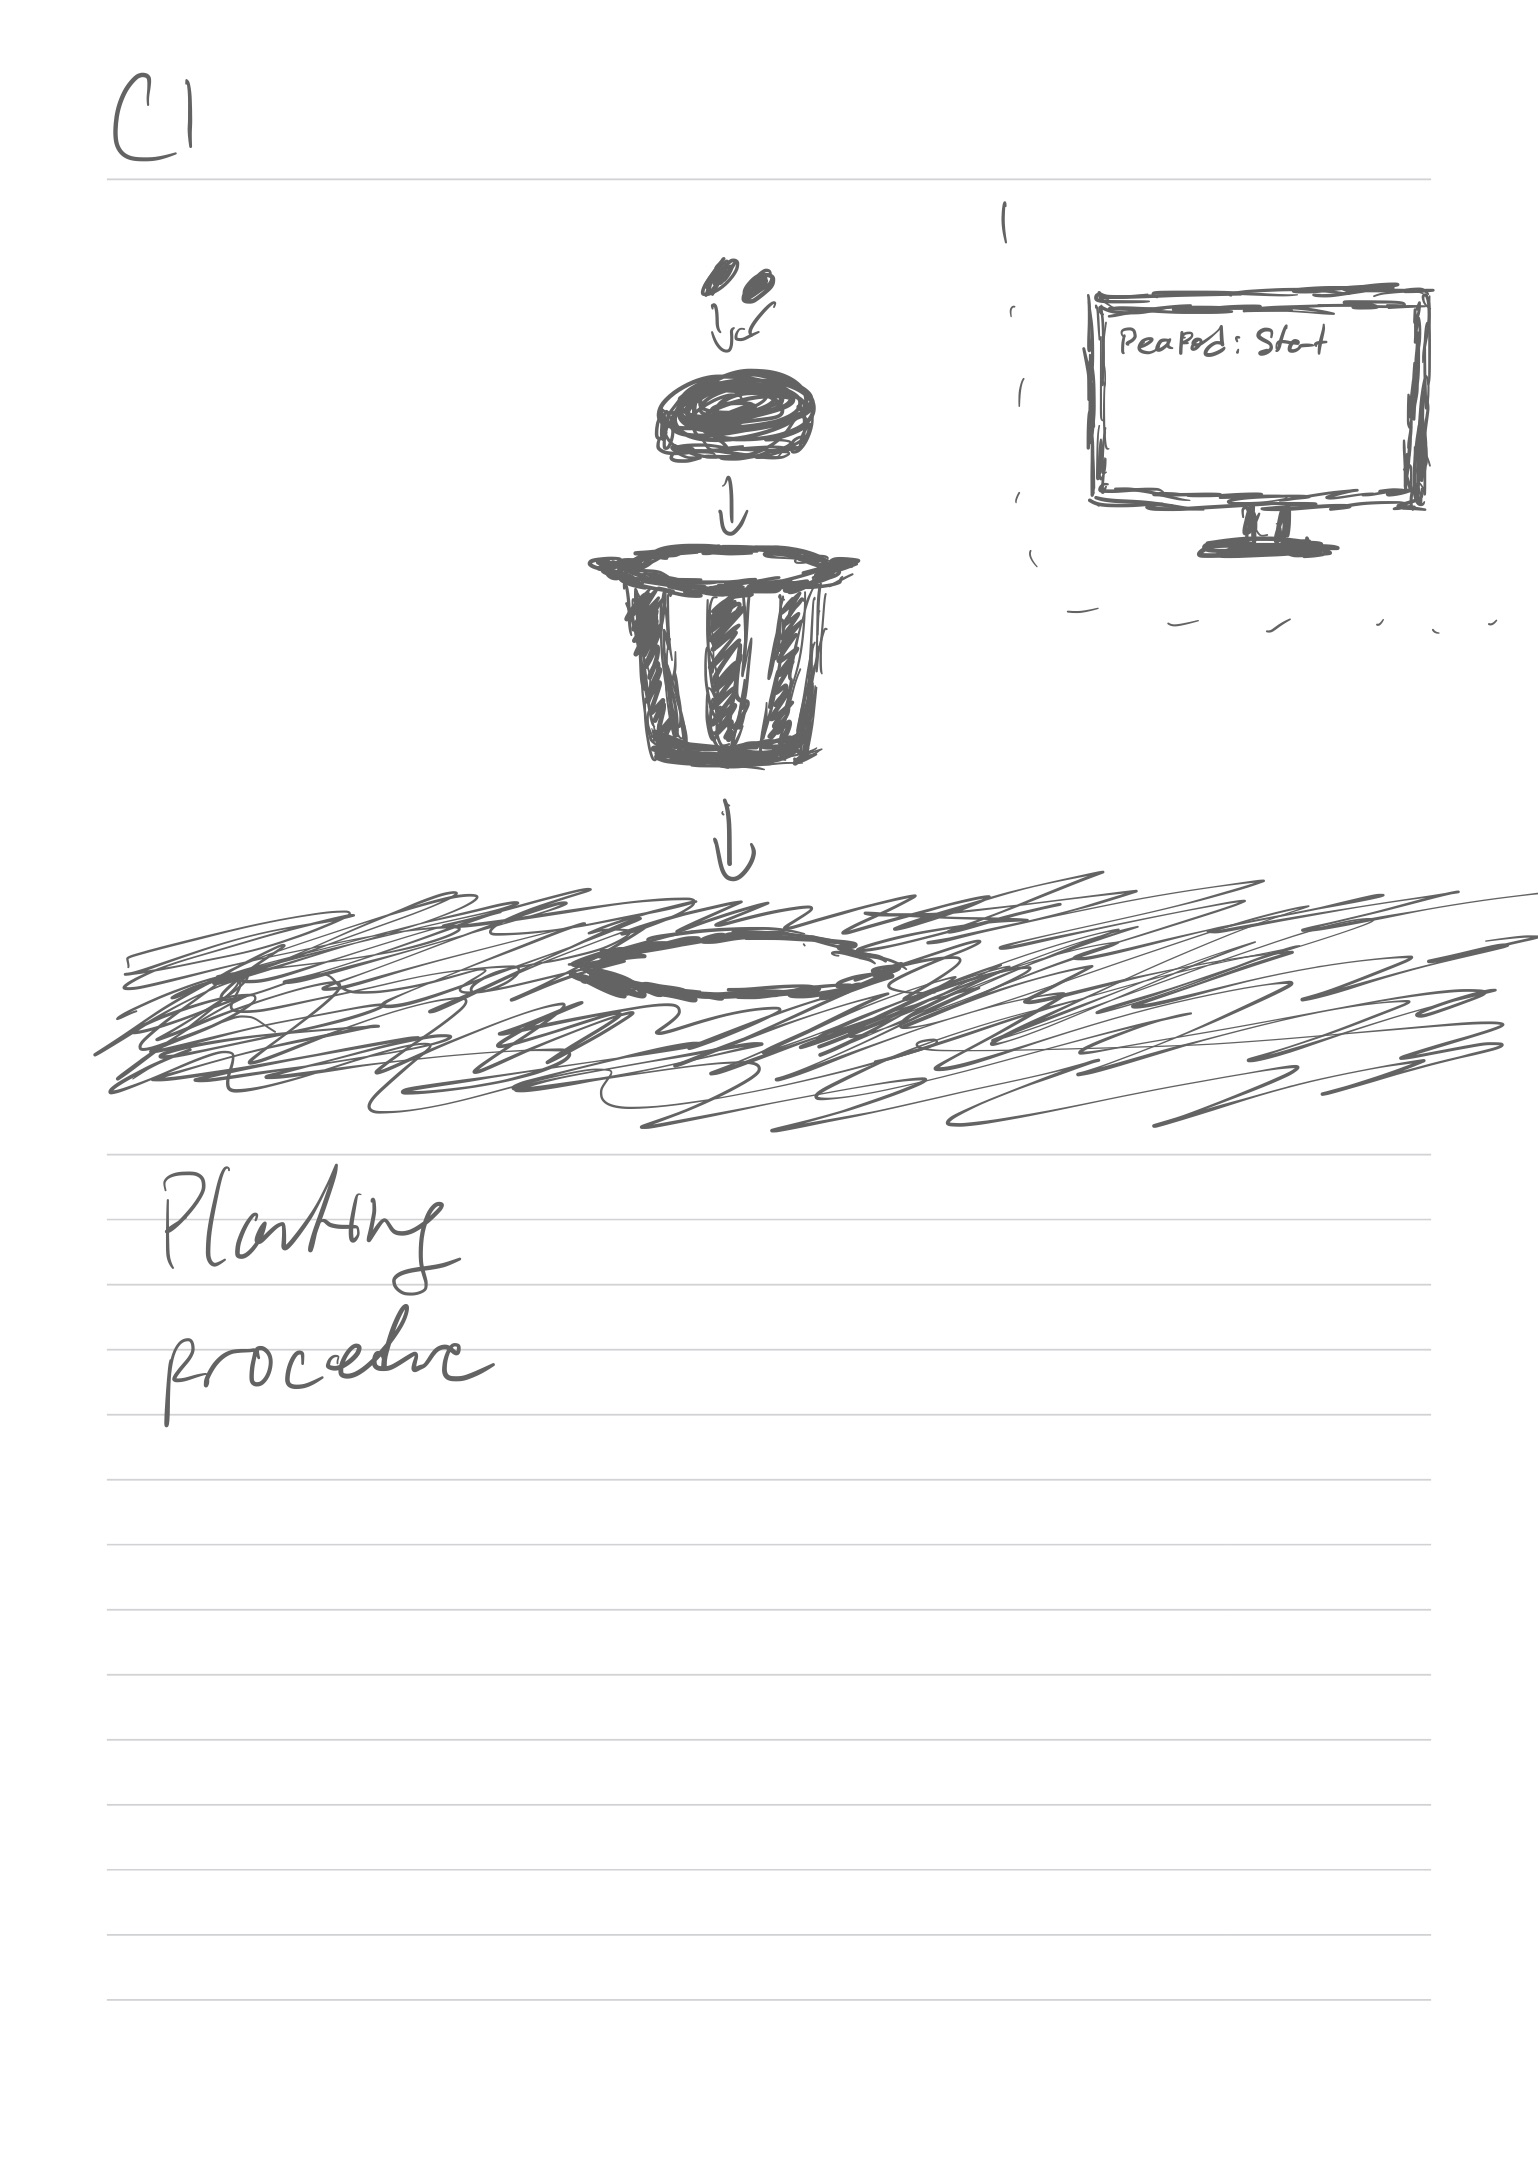 C1
PeaPod: Start
Planting
procedure